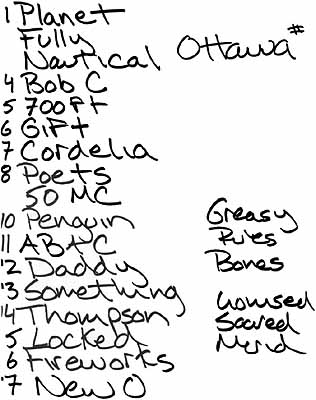 1 Planet
Fully
Nautical Ottawa#
4 Bob C
5 700 Ft
6 Gift
7 Cordelia
8 Poets
50 MC
10 Penguin
11 ABAC
12 Daddy
13 Something
14 Thompson
5 Locked
6 Fireworks
17 New O
Greasy
Rules
Bones
Scared